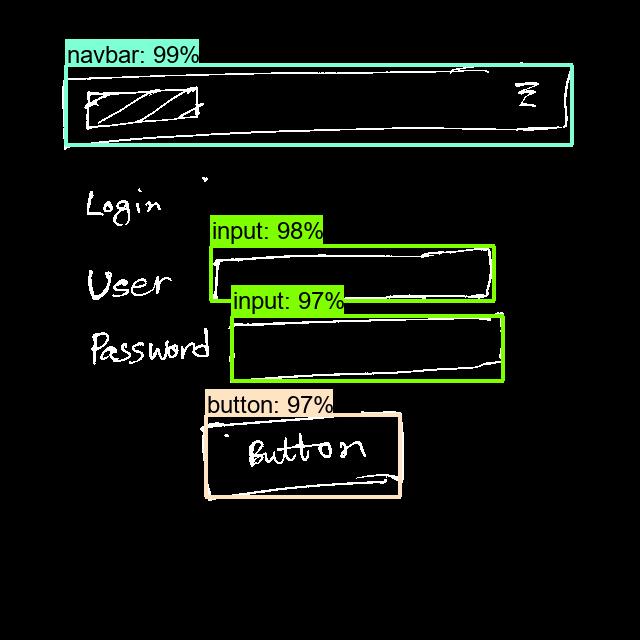 navbar: 99%
Login
input: 98%
User
input: 97%
Password
button: 97%
Button